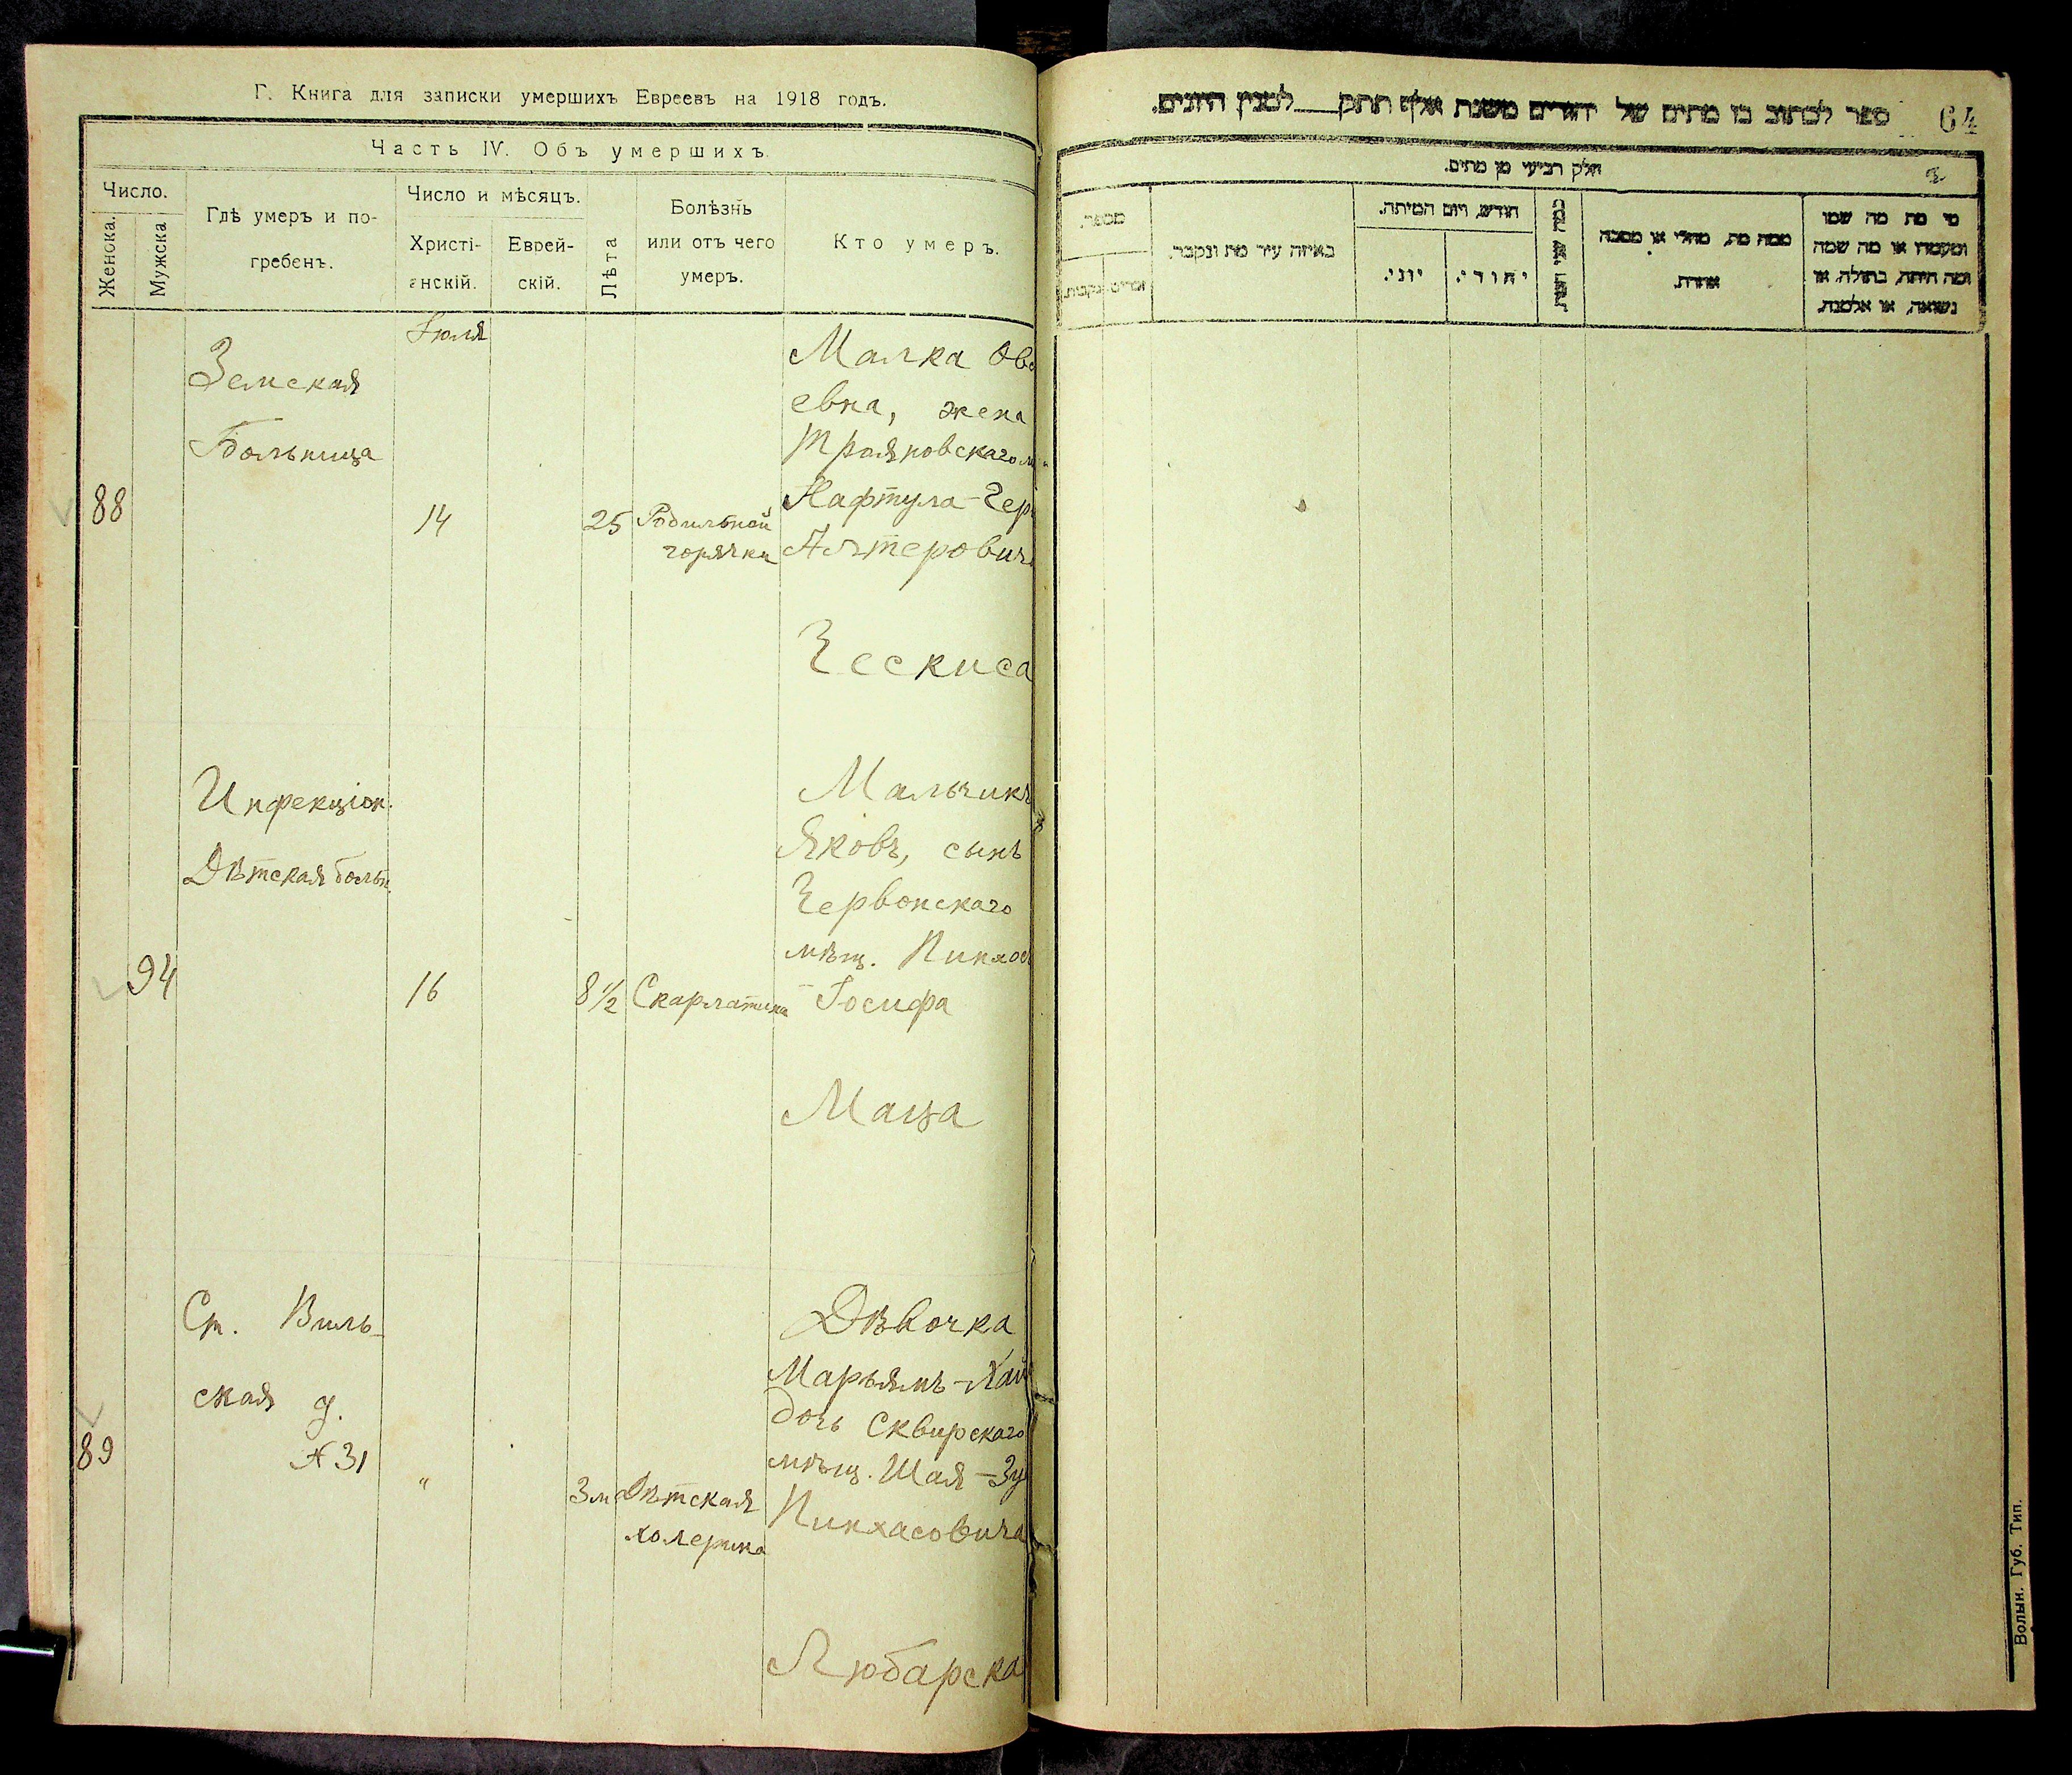 Г. Книга для записки умершихъ Евреевъ на 1918 годъ.
Часть IV. Объ умершихъ.
Число.
Женска.
Мужска
Гдѣ умеръ и по-
гребенъ.
Число и мѣсяцъ.
Христі-
анскій.
Еврей-
скій.
Лѣта
Болѣзнь
или отъ чего
умеръ.
Кто умеръ.
88
Земская
Больница
Іюля
14
25
Родильной
горячки
Малка Ов
евна, жена
Трояновскаго м
Нафтула-Гер
Алтеровича
Ческиса
94
Инфекціон.
Дѣтская больн.
16
8 1/2
Скарлатина
Мальчикъ
Яковъ, сынъ
Червонскаго
мѣщ. Пинхоса
-Іосифа
Маца
89
Ст. Виль-
ская д.
№ 31
"
3 м
Дѣтская
холерина
Дѣвочка
Марьямъ-Хая
дочь Сквирскаго
мѣщ. Шая-Зу
Пинхасовича
Любарска
ספר לכתוב בו מתים של יהודים משנת אלף תתק למנין היונים.
64
חלק רביעי מן מתים.
מספר
זכרים
נקבות
באיזה עיר מת ונקבר.
חודש, ויום המיתה.
יוני.
יהודי.
כמה שני חייו.
ממה מת, מחלי או מסבה
אחרת.
מי מת מה שמו
ומעמדו או מה שמה
ומה היתה, בתולה, או
נשואה, או אלמנה.
Волын. Губ. Тип.